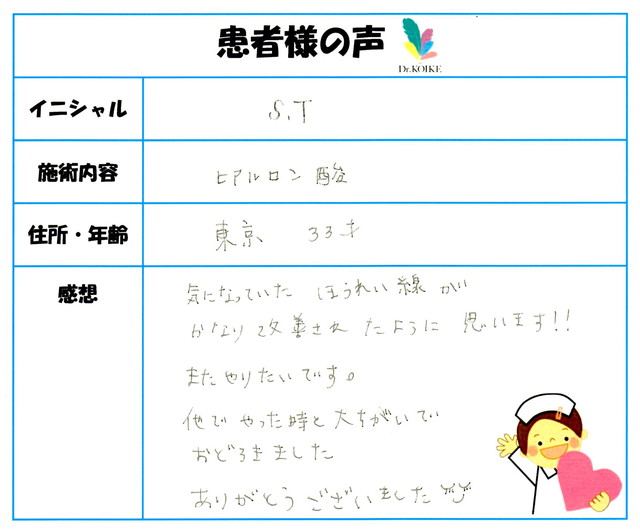 患者様の声
Dr.KOIKE
イニシャル S.T
施術内容 ヒアルロン酸
住所・年齢 東京 33才
感想 気になっていた ほうれい線が
かなり改善されたように思います!!
またやりたいです。
他でやった時と大ちがいで
おどろきました
ありがとうございました